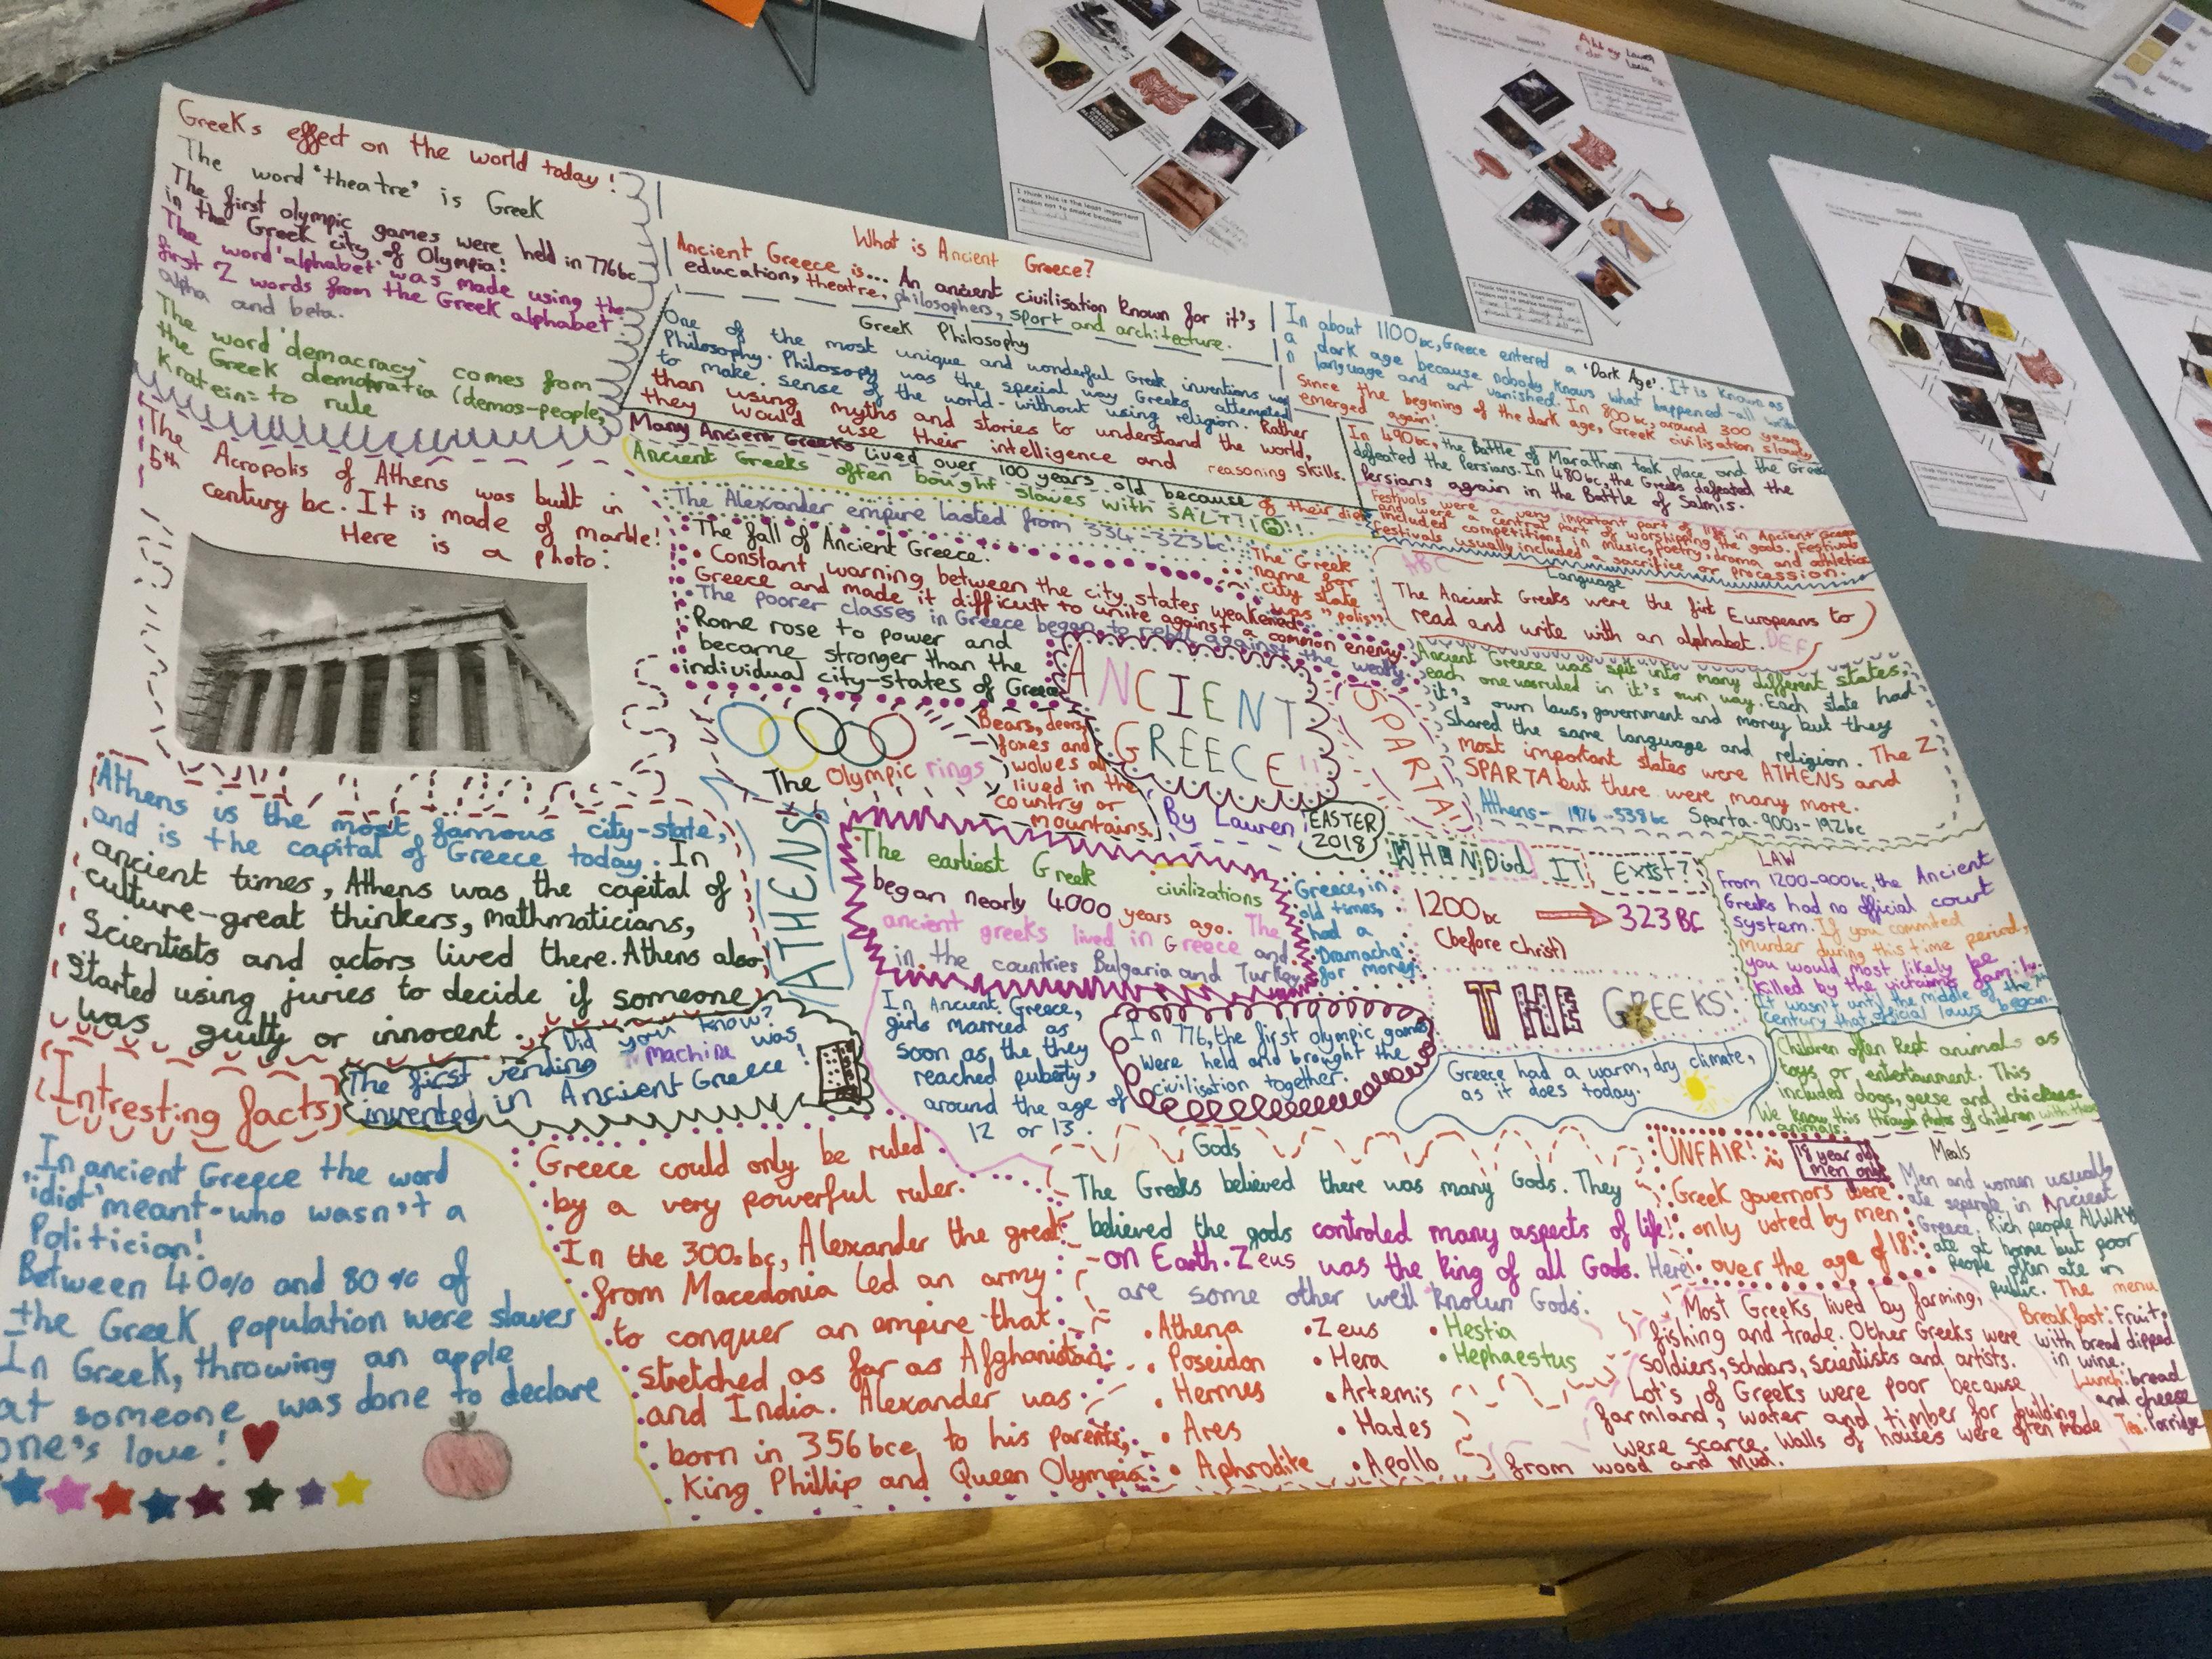 Greeks effect on the world today!
The word 'theatre' is Greek
The first olympic games were held in 776bc
in the Greek city of Olympia!
The word 'alphabet' was made using the
first 2 words from the Greek alphabet
alpha and beta.
The word 'demacracy' comes from
the Greek
(demos-people,
Kratein= to rule
The Acropolis of Athens was built in
5th century bc. It is made of marble!
Here is a photo:
Athens is the most famous city-state,
and is the capital of Greece today. In
ancient times, Athens was the capital of
culture-great thinkers, mathmaticians,
Scientists and actors lived there. Athens also
started using juries to decide if someone
was guilty or innocent.
(Intresting facts)
Did you know?
The first vending machine was
invented in Ancient Greece!
In ancient Greece the word
'idiot' meant-who wasn't a
Politician!
Between 40% and 80% of
the Greek population were slaves
In Greek, throwing an apple
at someone was done to declare
one's love!
What is Ancient Greece?
Ancient Greece is... An ancient civilisation known for it's
education, theatre, philosophers, sport and architecture.
Greek Philosophy
One of the most unique and wonderful Greek inventions was
Philosophy. Philosophy was the special way Greeks attempted
to make sense of the world-without using religion. Rather
than using myths and stories to understand the world,
they would use their intelligence and reasoning skills.
Many Ancient Greeks lived over 100 years old because of their diet
Ancient Greeks often bought slaves with SALT!
The Alexander empire lasted from 334-323bc.
The fall of Ancient Greece:
• Constant warning between the city states weakened
Greece and made it difficult to unite against a common enemy.
• The poorer classes in Greece began to rebel against the wealthy.
• Rome rose to power and
became stronger than the
individual city-states of Greece
The Greek
name for
city state
was "polis"
The Olympic rings
Bears, deers,
foxes and
wolves all
lived in the
country or
mountains.
ANCIENT
GREECE!!
By Lauren
EASTER
2018
ATHENS!
SPARTA!
In about 1100bc, Greece entered a 'Dark Age'. It is known as
a dark age because nobody knows what happened-all
language and art vanished. In 800bc, around 300 years
Since the begining of the dark age, Greek civilisation slowly
emerged again!
In 490bc, the Battle of Marathon took place and the Greeks
defeated the Persians. In 480bc, the Greeks defeated the
Persians again in the Battle of Salmis.
Festivals were a very important part of life in Ancient Greece
and were a central part of worshipping the gods. Festivals
included competitions in music, poetry, drama and athletics
Festivals usually included a sacrifice or procession.
Language
ABC
The Ancient Greeks were the first Europeans to
read and write with an alphabet. DEF
Ancient Greece was split into many different states,
each one was ruled in it's own way. Each state had
it's own laws, government and money but they
Shared the same language and religion. The 2
most important states were ATHENS and
SPARTA but there were many more.
Athens- 538bc Sparta-900s-192bc
The earliest Greek civilizations
began nearly 4000 years ago. The
ancient greeks lived in Greece and
in the countries Bulgaria and Turkey
Greece, in
old times,
had a
'Dramacha'
for money.
WHEN Did IT Exist?
1200bc → 323BC
(before christ)
THE GREEKS!
LAW
From 1200-900bc, the Ancient
Greeks had no official court
system. If you commited
murder during this time period,
you would most likely be
killed by the victims family.
It wasn't until the middle of the 7th
century that official laws began.
In Ancient Greece,
girls married as
soon as the they
reached puberty,
around the age of
12 or 13.
In 776, the first olympic games
were held and brought the
civilisation together.
Greece had a warm, dry climate,
as it does today.
Children often kept animals as
toys or entertainment. This
included dogs, geese and chickens.
We know this through photos of children with these
animals.
Greece could only be ruled
by a very powerful ruler.
In the 300s bc, Alexander the great
from Macedonia led an army
to conquer an empire that
stretched as far as Afghanistan
and India. Alexander was
born in 356bce, to his parents,
King Phillip and Queen Olympia.
Gods
The Greeks believed there was many Gods. They
believed the gods controled many aspects of life
on Earth. Zeus was the king of all Gods. Here
are some other well known Gods:
• Athena
• Poseidon
• Hermes
• Ares
• Aphrodite
• Zeus
• Hera
• Artemis
• Hades
• Apollo
• Hestia
• Hephaestus
UNFAIR!
18 year old
men only
Greek governors were
only voted by men
over the age of 18.
Meals
Men and women usually
ate separate in Ancient
Greece. Rich people ALLWAYS
ate at home but poor
people often ate in
public. The menu
Breakfast: Fruit,
with bread dipped
in wine.
Lunch: bread
and cheese
Tea: Porridge
Most Greeks lived by farming,
fishing and trade. Other Greeks were
soldiers, scholars, scientists and artists.
Lot's of Greeks were poor because
farmland, water and timber for building
were scarce. Walls of houses were often made
from wood and mud.
I think this is the least important
reason not to smoke because